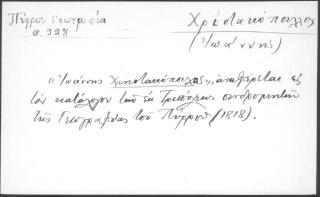 Πύρρου Γεωγραφία
σ. 328
Χρηστακόπουλος
(Ἰωάννης)
"Ἰωάννης Χρηστακόπουλος", ἀναφέρεται εἰς
τὸν κατάλογον τῶν ἐκ Τριπόλεως συνδρομητῶν
τῆς Γεωγραφίας τοῦ Πύρρου (1818).